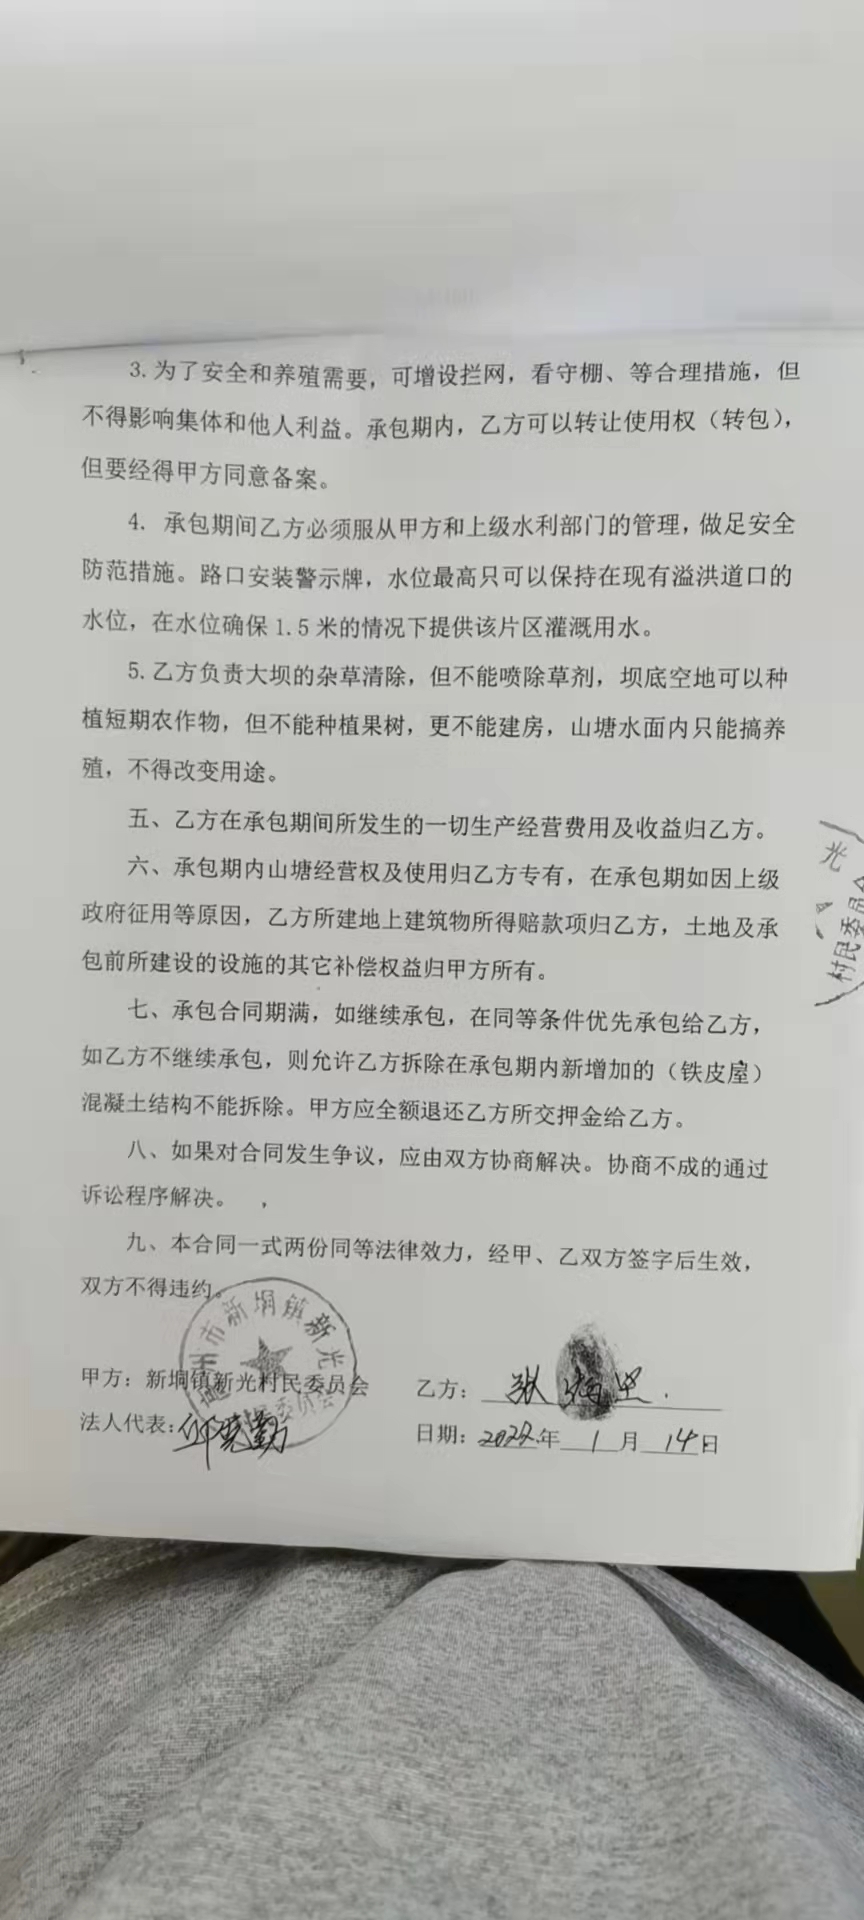 3.为了安全和养殖需要，可增设拦网，看守棚、等合理措施，但
不得影响集体和他人利益。承包期内，乙方可以转让使用权（转包），
但要经得甲方同意备案。
4. 承包期间乙方必须服从甲方和上级水利部门的管理，做足安全
防范措施。路口安装警示牌，水位最高只可以保持在现有溢洪道口的
水位，在水位确保 1.5 米的情况下提供该片区灌溉用水。
5.乙方负责大坝的杂草清除，但不能喷除草剂，坝底空地可以种
植短期农作物，但不能种植果树，更不能建房，山塘水面内只能搞养
殖，不得改变用途。
五、乙方在承包期间所发生的一切生产经营费用及收益归乙方。
六、承包期内山塘经营权及使用归乙方专有，在承包期如因上级
政府征用等原因，乙方所建地上建筑物所得赔款项归乙方，土地及承
包前所建设的设施的其它补偿权益归甲方所有。
七、承包合同期满，如继续承包，在同等条件优先承包给乙方，
如乙方不继续承包，则允许乙方拆除在承包期内新增加的（铁皮屋）
混凝土结构不能拆除。甲方应全额退还乙方所交押金给乙方。
八、如果对合同发生争议，应由双方协商解决。协商不成的通过
诉讼程序解决。
九、本合同一式两份同等法律效力，经甲、乙双方签字后生效，
双方不得违约。
甲方：新垌镇新光村民委员会
乙方：张
法人代表：邱
日期：2022年 1 月 14日
市新垌镇新光
光
村民委员会